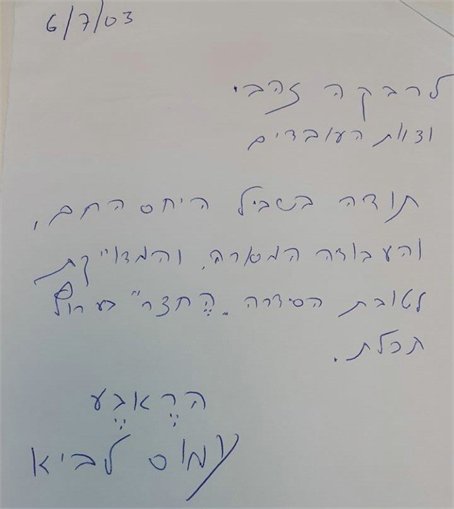 6/7/03
לרבקה זהבי
וצוות העובדים
תודה בשביל היחס החם,
והעבודה המסורה, והמדוייקת
לטובת הסדרה "הֶחצר" בערוץ
תכלת.
הרֶאבֶע
עמוס לביא